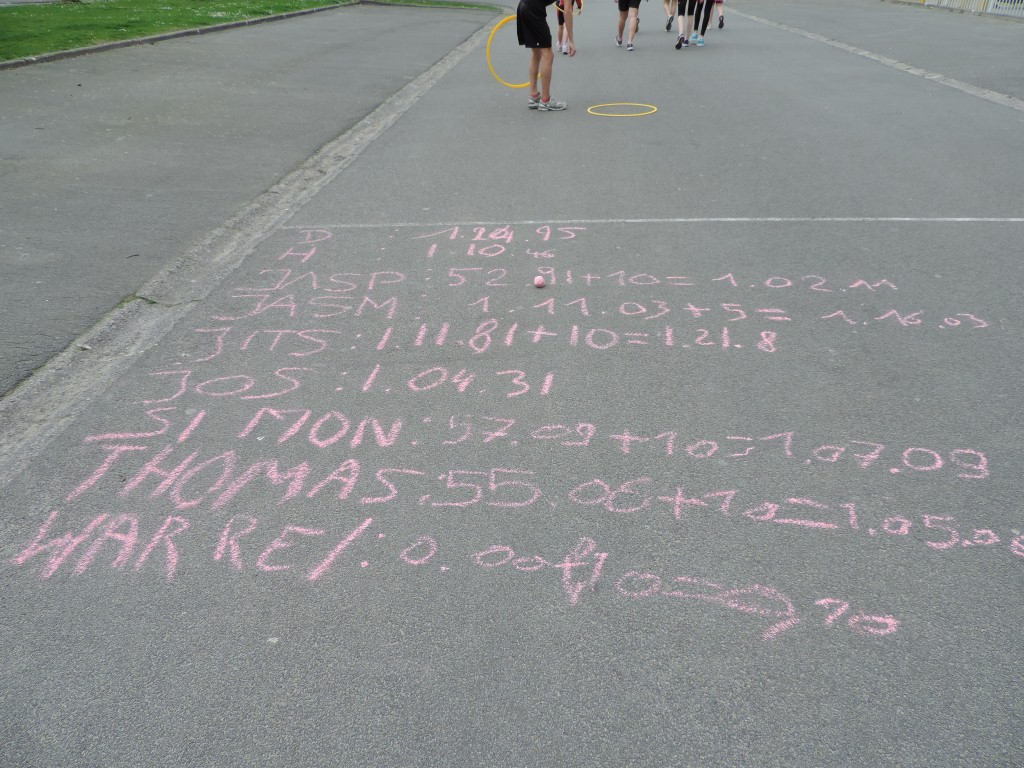 D 1.24.95
H 1.10.46
JASP : 52.91+10= 1.02.M
JASM 1.11.03+5= 1.16.03
JITS : 1.11.81+10=1.21.8
JOS : 1.04.31
SIMON : 57.09+10=1.07.09
THOMAS : 55.06+10=1.05.06
WARRE/ : 0.00 10= 10